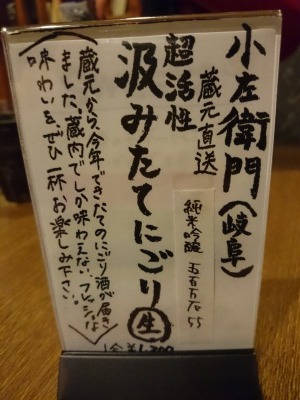 小左衛門(岐阜)
蔵元直送
純米吟醸 五百万石 55
超活性
汲みたてにごり生
蔵元から、今年できたてのにごり酒が届き
ました。蔵内でしか味わえない、フレッシュな
味わいをぜひ一杯お楽しみ下さい。